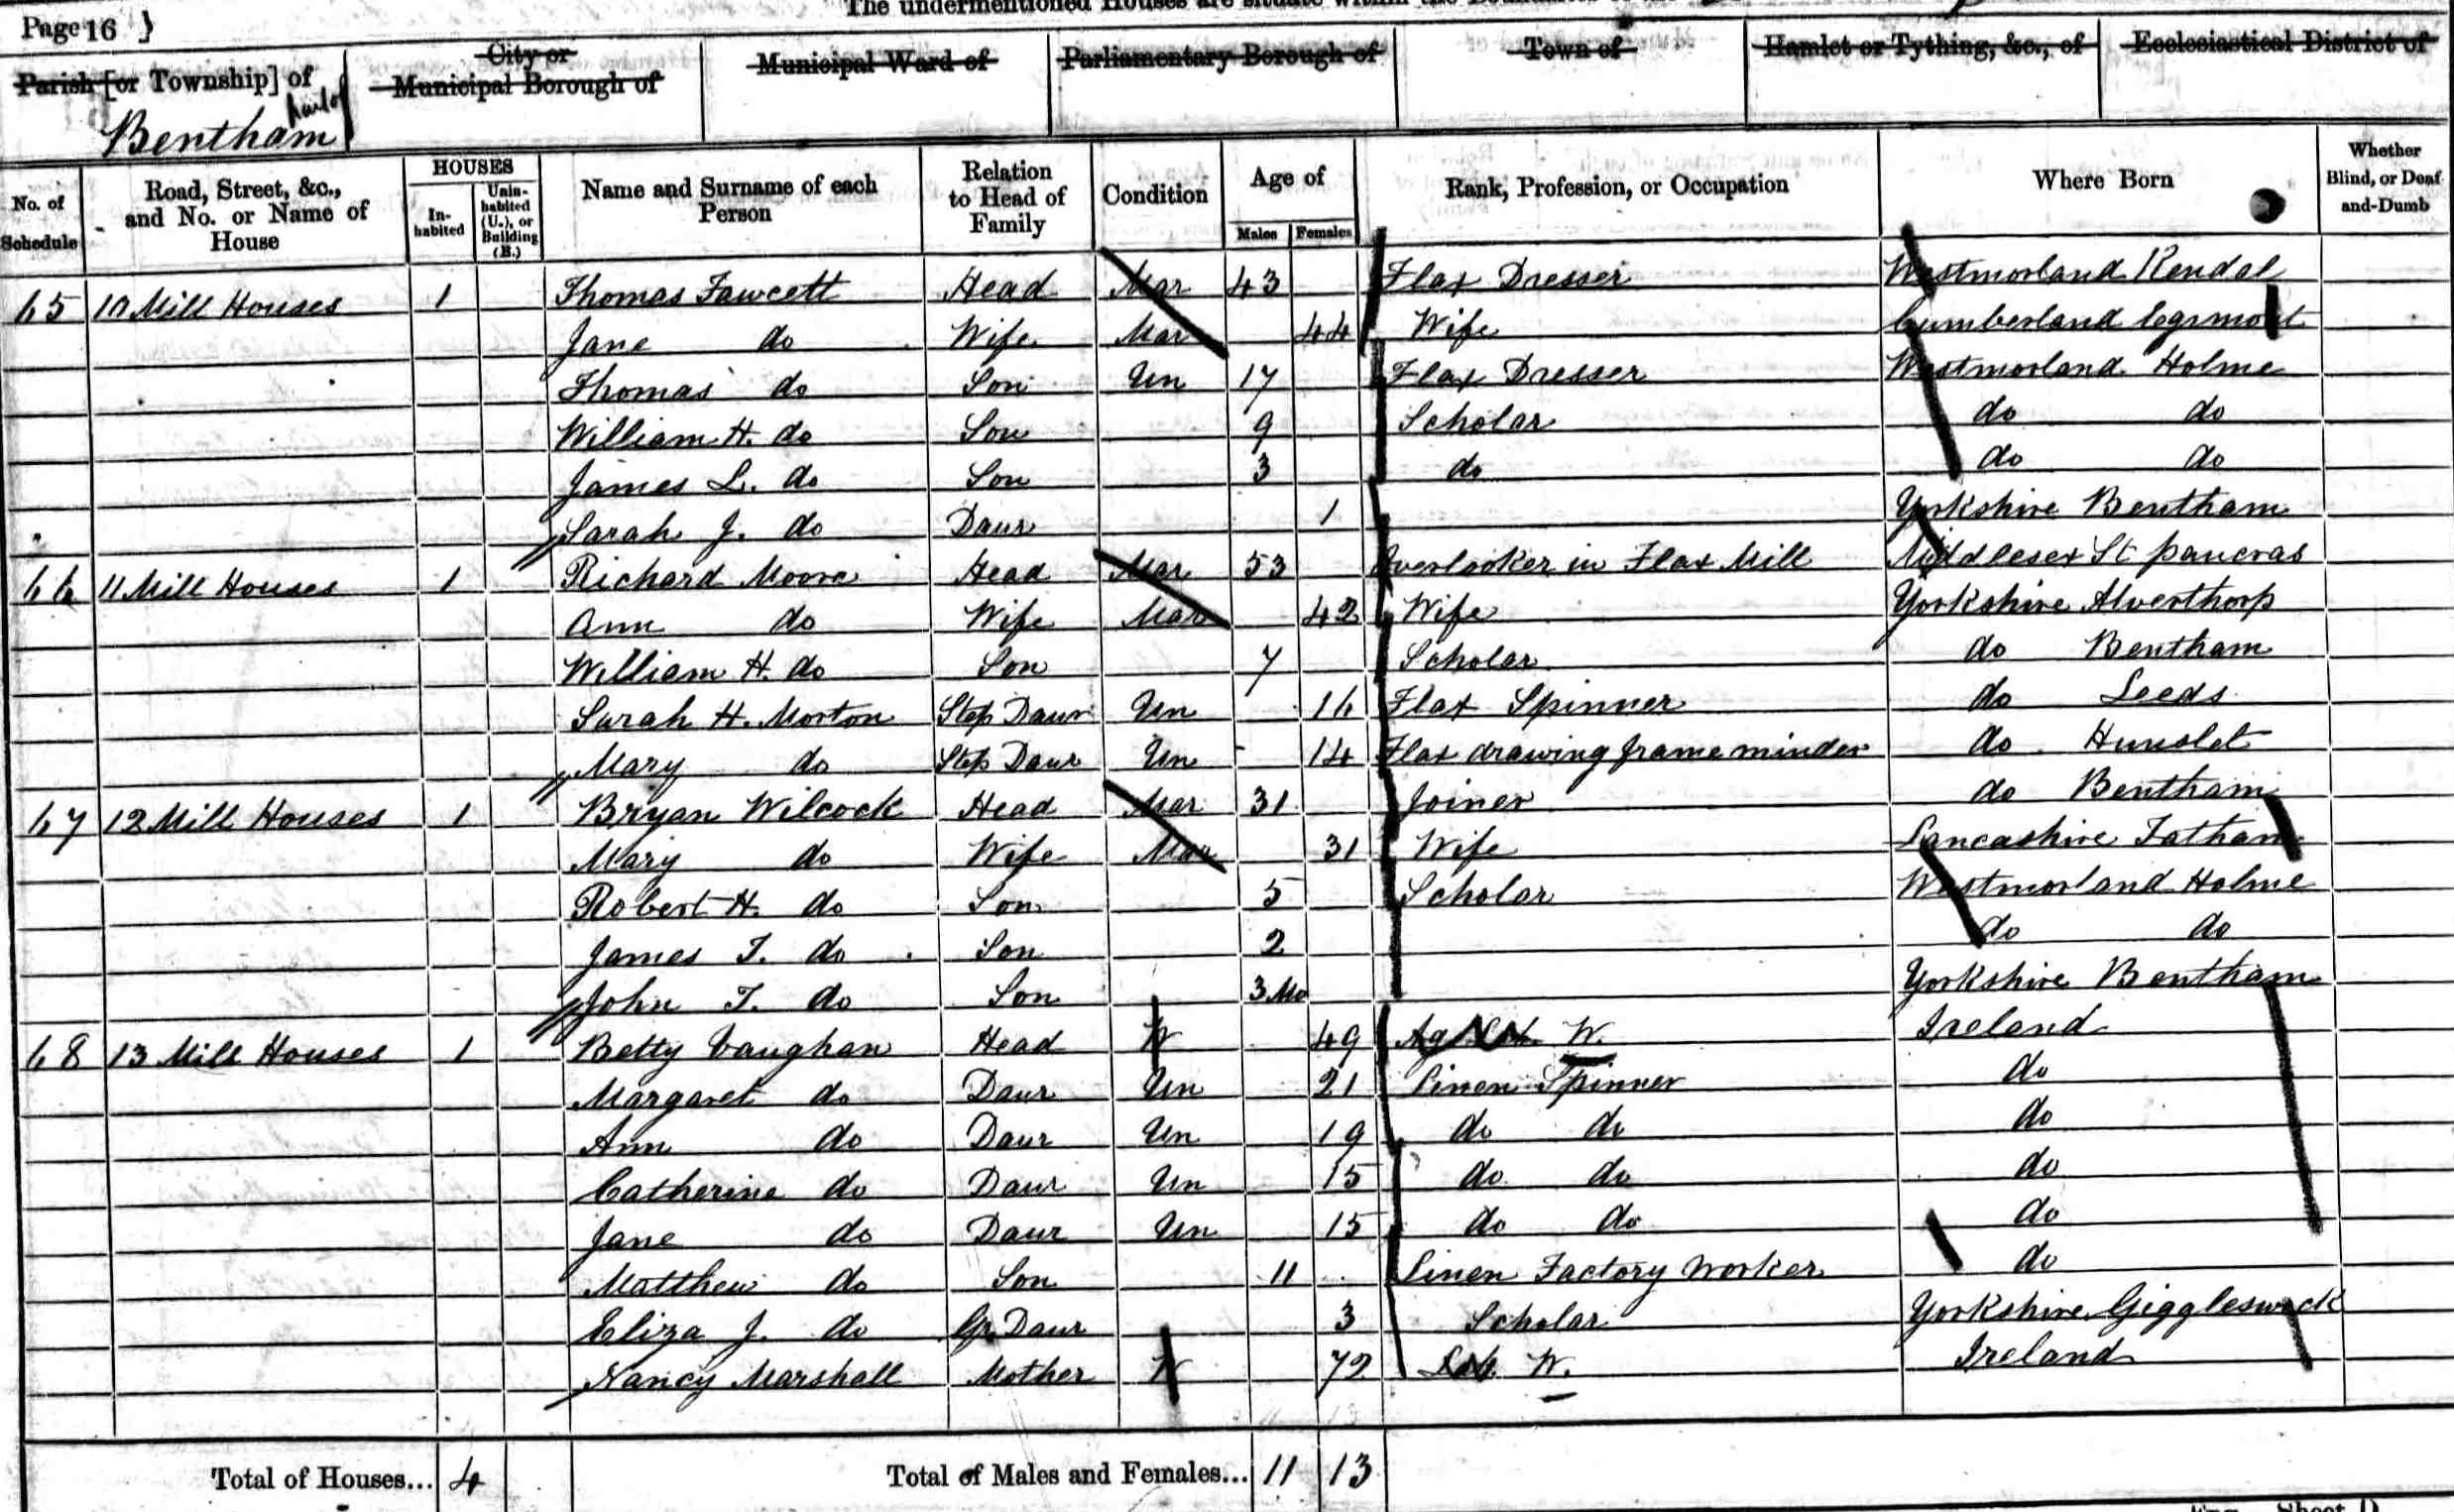 The undermentioned Houses are situate within the Boundaries of the
Page 16 }
Parish [or Township] of
Bentham
City or
Municipal Borough of
Municipal Ward of
Parliamentary Borough of
Town of
Hamlet or Tything, &c., of
Ecclesiastical District of
No. of Schedule
Road, Street, &c., and No. or Name of House
HOUSES
In-habited
Unin-habited (U.), or Building (B.)
Name and Surname of each Person
Relation to Head of Family
Condition
Age of
Males
Females
Rank, Profession, or Occupation
Where Born
Whether Blind, or Deaf-and-Dumb
65 10 Mill Houses 1 Thomas Fawcett Head Mar 43 Flax Dresser Westmorland Kendal
Jane do Wife Mar 44 Wife Cumberland Egremont
Thomas do Son Un 17 Flax Dresser Westmorland Holme
William H. do Son 9 Scholar do do
James L. do Son 3 do do do
Sarah J. do Daur 1 Yorkshire Bentham
66 11 Mill Houses 1 Richard Moore Head Mar 53 Overlooker in Flax Mill Middlesex St pancras
Ann do Wife Mar 42 Wife Yorkshire Alverthorp
William H. do Son 7 Scholar do Bentham
Sarah H. Morton Step Daur Un 16 Flax Spinner do Leeds
Mary do Step Daur Un 14 Flax drawing frame minder do Hunslet
67 12 Mill Houses 1 Bryan Wilcock Head Mar 31 Joiner do Bentham
Mary do Wife Mar 31 Wife Lancashire Tatham
Robert H. do Son 5 Scholar Westmorland Holme
James T. do Son 2 do do
John T. do Son 3 Mo Yorkshire Bentham
68 13 Mill Houses 1 Betty Vaughan Head W 49 Ag Lab. W. Ireland
Margaret do Daur Un 21 Linen Spinner do
Ann do Daur Un 19 do do do
Catherine do Daur Un 15 do do do
Jane do Daur Un 15 do do do
Matthew do Son 11 Linen Factory Worker do
Eliza J. do Gr Daur 3 Scholar Yorkshire Giggleswick
Nancy Marshall Mother W 72 Lab. W. Ireland
Total of Houses... 4
Total of Males and Females... 11 13
Sheet D